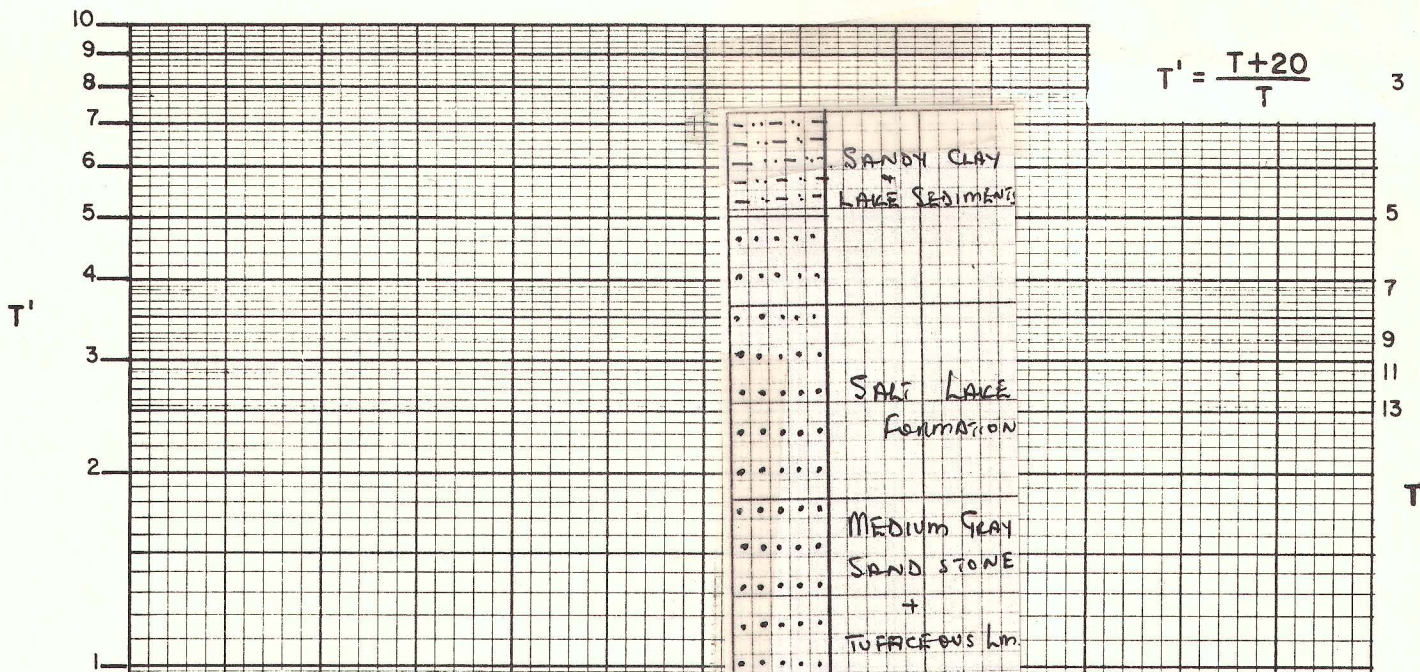 10
9
8
7
6
5
4
3
2
1
T'
T' = T+20
T
3
5
7
9
11
13
T
SANDY CLAY
+
LAKE SEDIMENTS
SALT LAKE
FORMATION
MEDIUM GRAY
SAND STONE
+
TUFFACEOUS Lm.